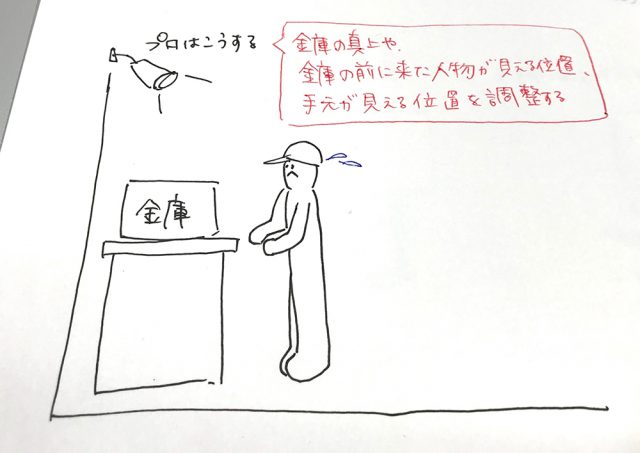 プロはこうする
金庫の真上や、
金庫の前に来た人物が見える位置、
手元が見える位置を調整する
金庫